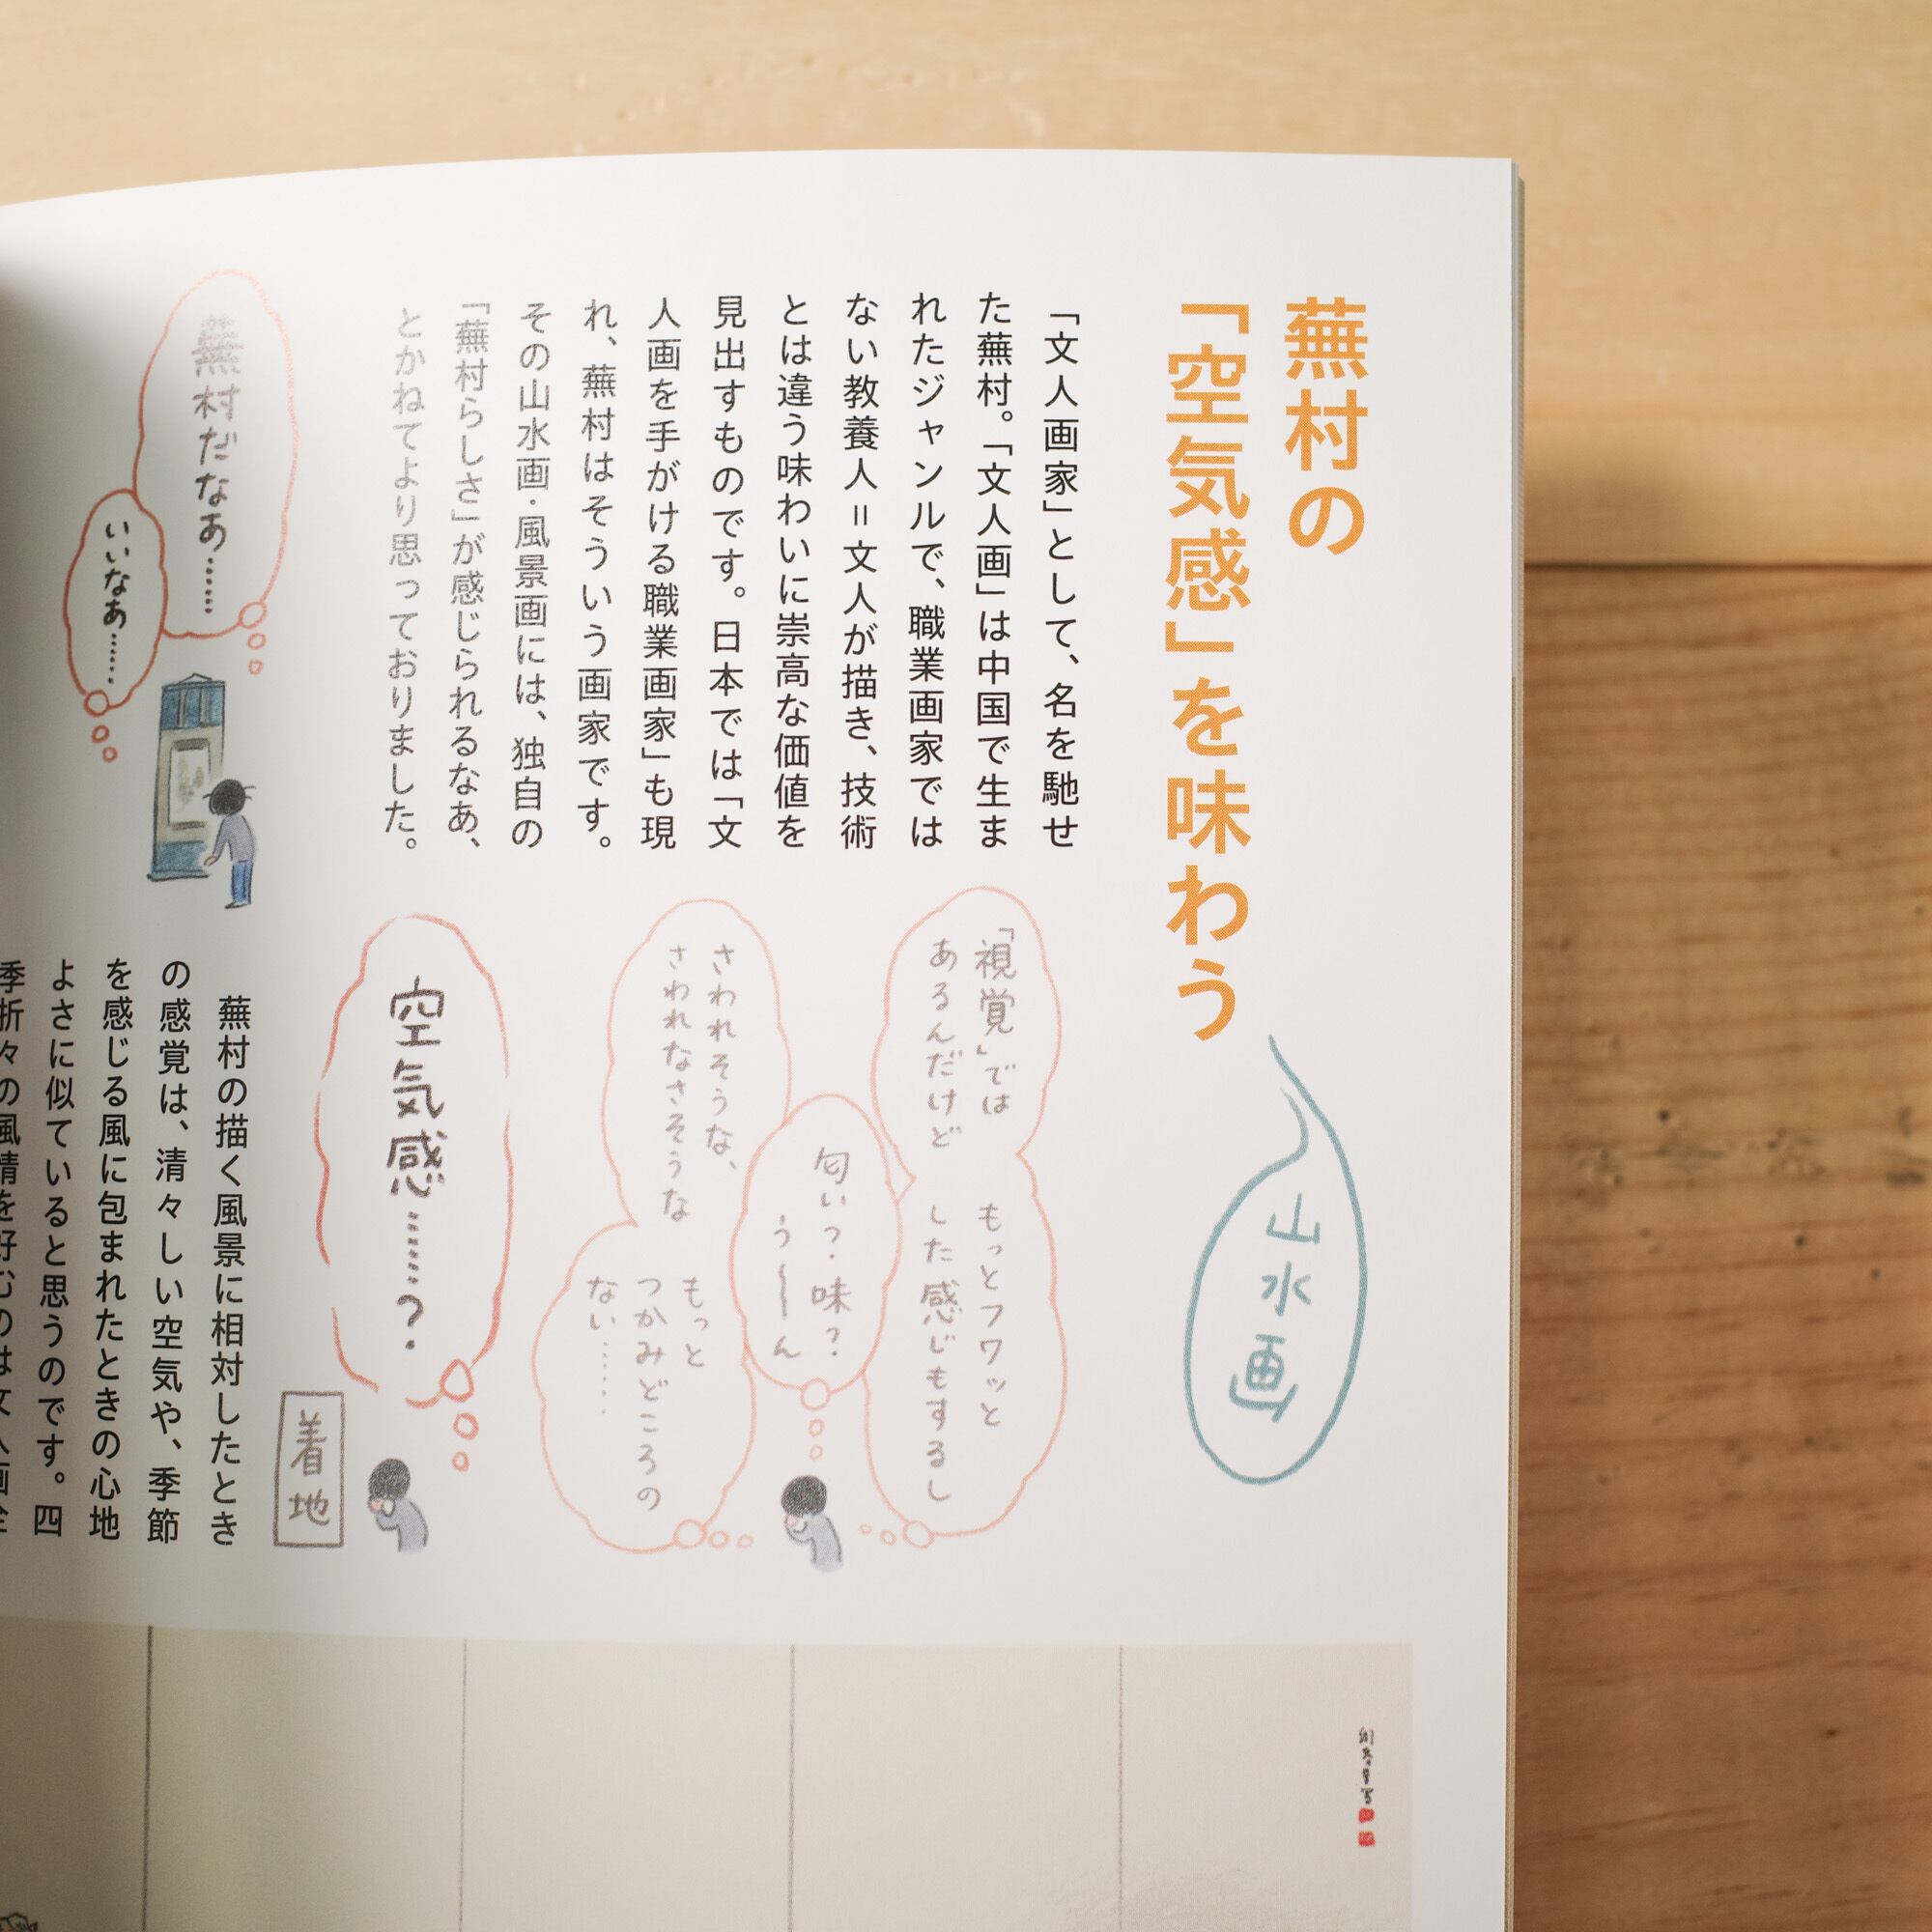 蕪村の
「空気感」を味わう
山水画
「文人画家」として、名を馳せ
た蕪村。「文人画」は中国で生ま
れたジャンルで、職業画家では
ない教養人＝文人が描き、技術
とは違う味わいに崇高な価値を
見出すものです。日本では「文
人画を手がける職業画家」も現
れ、蕪村はそういう画家です。
その山水画・風景画には、独自の
「蕪村らしさ」が感じられるなあ、
とかねてより思っておりました。
蕪村だなあ……
いいなあ……
「視覚」では
あるんだけど
もっとフワッと
した感じもするし
匂い？味？
う〜ん
さわれそうな、
さわれなさそうな
もっと
つかみどころの
ない……
空気感……？
着地
蕪村の描く風景に相対したとき
の感覚は、清々しい空気や、季節
を感じる風に包まれたときの心地
よさに似ていると思うのです。四
季折々の風情を好むのは文人画